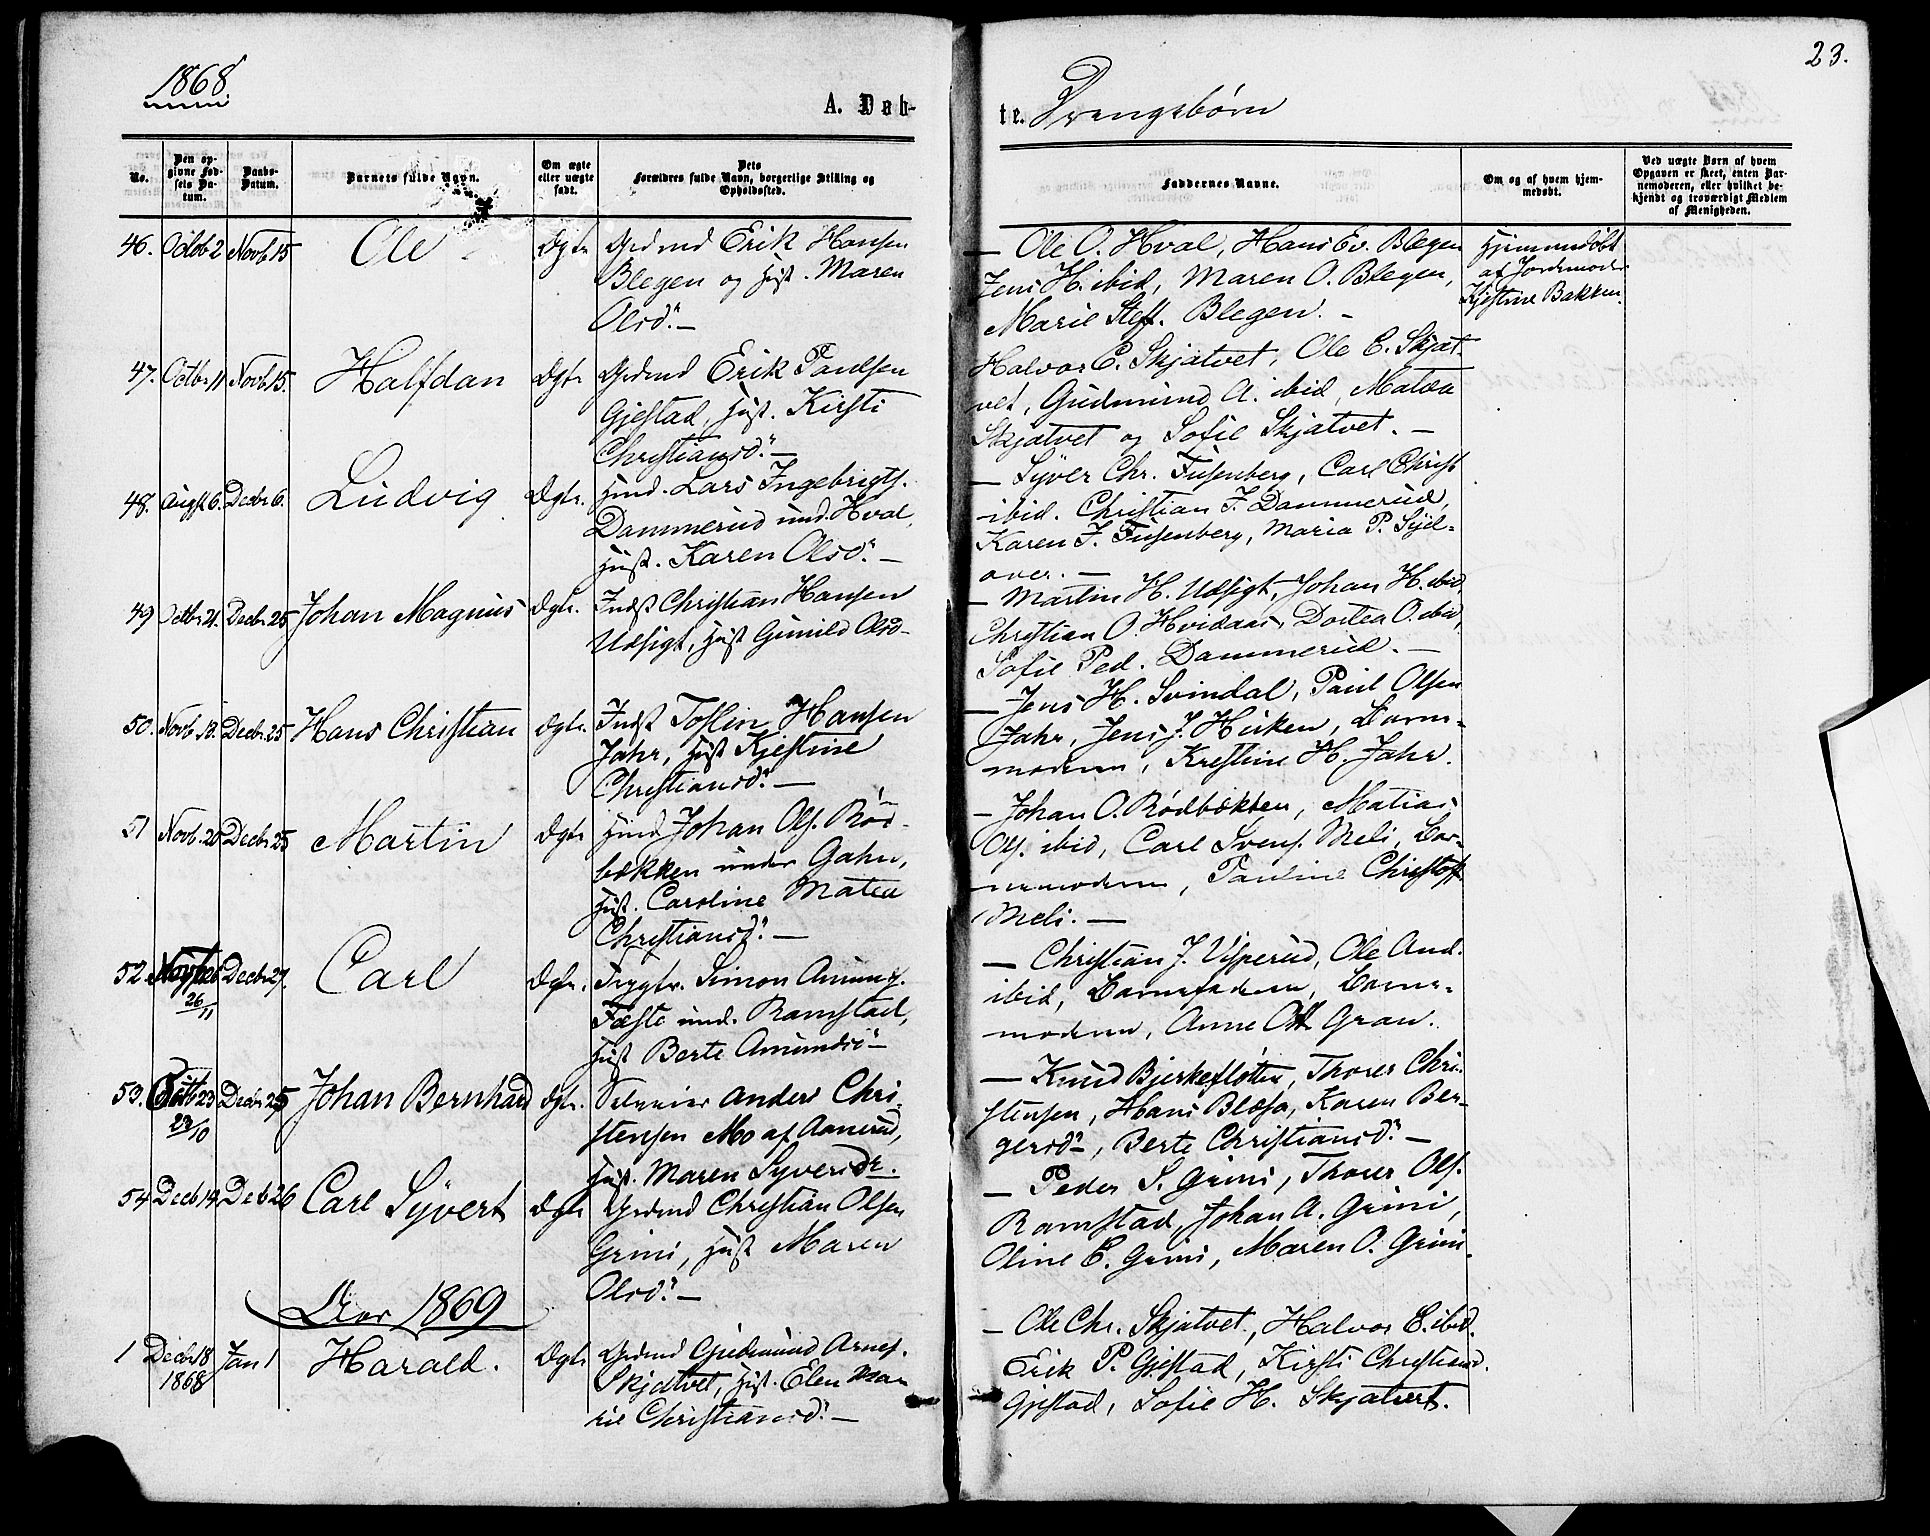 1868.
23.
A. Døb-
te. Drengebørn
No.
Den op-
givne Fød-
sels Da-
tum.
Daabs-
Datum.
Barnets fulde Navn.
Om ægte
eller uægte
født.
Dets
Forældres fulde Navn, borgerlige Stilling og
Opholdssted.
Faddernes Navne.
Om og af hvem hjem-
medøbt.
Ved uægte Børn af hvem
Opgaven er skeet, enten Bar-
nemoderen, eller hvilket be-
kjendt og troværdigt Medlem
af Menigheden.
46. Octob 2 Novb 15 Ole Ægte Grdmd Erik Hansen
Blegen og Hust. Maren
Olsdr. –
– Ole O. Hval, Hans Ev. Blegen
Jens H. ibid, Maren O. Blegen,
Marie Steff. Blegen. –
Hjemmedøbt
af Jordemoder
Kjestine Bakken.
47. Octbr 11 Novb 15. Halfdan Ægte Grdmd Erik Paulsen
Gjestad, Hust. Kirsti
Christiansd. –
Halvor C. Skjatvet, Ole C. Skjat-
vet, Gudmund A. ibid, Matea
Skjatvet og Sofie Skjatvet. –
48. Augst 6. Decbr 6. Ludvig Ægte. Husmd. Lars Ingebrigts.
Dammerud und. Hval,
Hust. Karen Olsd. –
– Syver Chr. Fusenberg, Carl Christ
ibid. Christian J. Dammerud,
Karen J. Fusenberg, Maria P. Syel-
over. –
49 Octbr 21. Decbr 25 Johan Magnus Ægte. Indst Christian Hansen
Udsigt, Hust Gunild Olsd –
– Martin H. Udsigt, Johan H. ibid,
Christian O. Hvidaas, Dortea O. ibid,
Sofie Ped. Dammerud. –
50. Novb 12. Decbr 25 Hans Christian Ægte. Indst Toslin Hansen
Jahr, Hust Kjestine
Christiansd. –
– Jens H. Svindal, Paul Olsen
Jahr, Jens J. Hicken, Barn-
moderen, Krestine H. Jahr.
51 Novb. 20 Decbr 25 Martin Ægte Husmd Johan Ols. Rød-
bækken under Gahn,
Hust. Caroline Matea
Christiansd. –
– Johan O. Rødbækken, Matias
Ols. ibid, Carl Svens. Meli, Bar-
nemoderen, Pauline Christoff.
Meli. –
52 26/11 Decbr 27. Carl Ægte. Simon Amunds.
Fæste und. Ramstad,
Hust Berte Amundsd –
– Christian J. Visperud, Ole And.
ibid, Barnefaderen, Barne-
moderen, Anne Ott Gran.
53. Octb 23 23/10 Decbr 25 Johan Bernhard Ægte. Selveier Anders Chri-
stensen Mo af Aanerud,
Hust. Maren Syversdr.
– Knud Bjerkefløten, Thorer Chri-
stensen, Hans Blæsa, Karen Ber-
gersd –, Berte Christiansd. –
54 Decb 14. Deb 26 Carl Syvert Ægte Grdmd Christian Olsen
Grini, Hust Maren
Olsd. –
– Peder S. Grini, Thorer Ols.
Ramstad, Johan A. Grini,
Oline E. Grini, Maren O. Grini.
Aar 1869
1 Decbr 18 1868 Jan 1 Harald. Ægte Grdmd Gudmund Arnes.
Skjatvet, Hust. Elen Ma-
rie Christiansd. –
– Ole Chr. Skjatvet, Halvor E. ibid.
Erik P. Gjestad, Kirsti Christiansd.
Gjestad, Sofie H. Skjatvet.